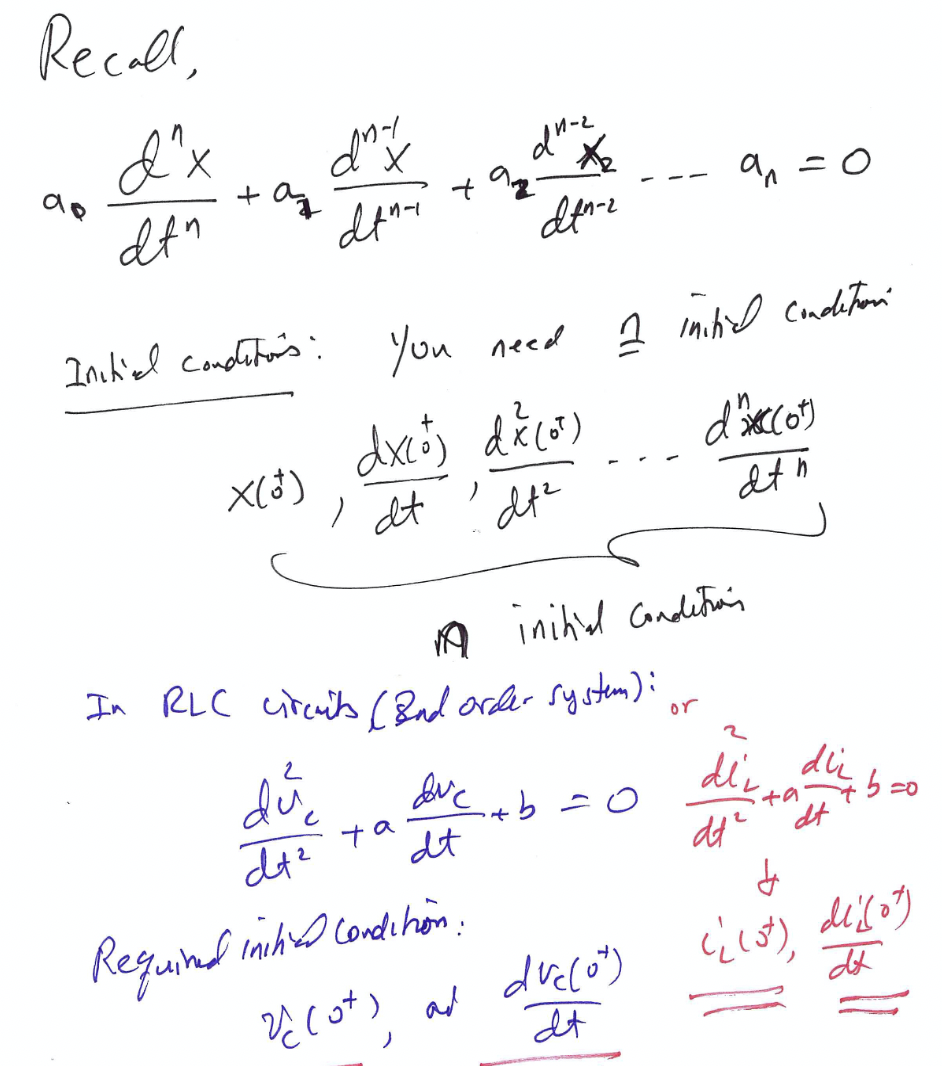 Recall,
a₀ dⁿx/dtⁿ + a₁ dⁿ⁻¹x/dtⁿ⁻¹ + a₂ dⁿ⁻²x₂/dtⁿ⁻² ---- aₙ = 0
Initial conditions: You need n initial condition
x(0⁺), dx(0⁺)/dt, d²x(0⁺)/dt² ---- dⁿx(0⁺)/dtⁿ
n initial condition
In RLC circuits (2nd order system): or
d²v_c/dt² + a dv_c/dt + b = 0
d²i_L/dt² + a di_L/dt + b = 0
↓
i_L(0⁺), di_L(0⁺)/dt
Required initial condition:
v_c(0⁺), and dv_c(0⁺)/dt